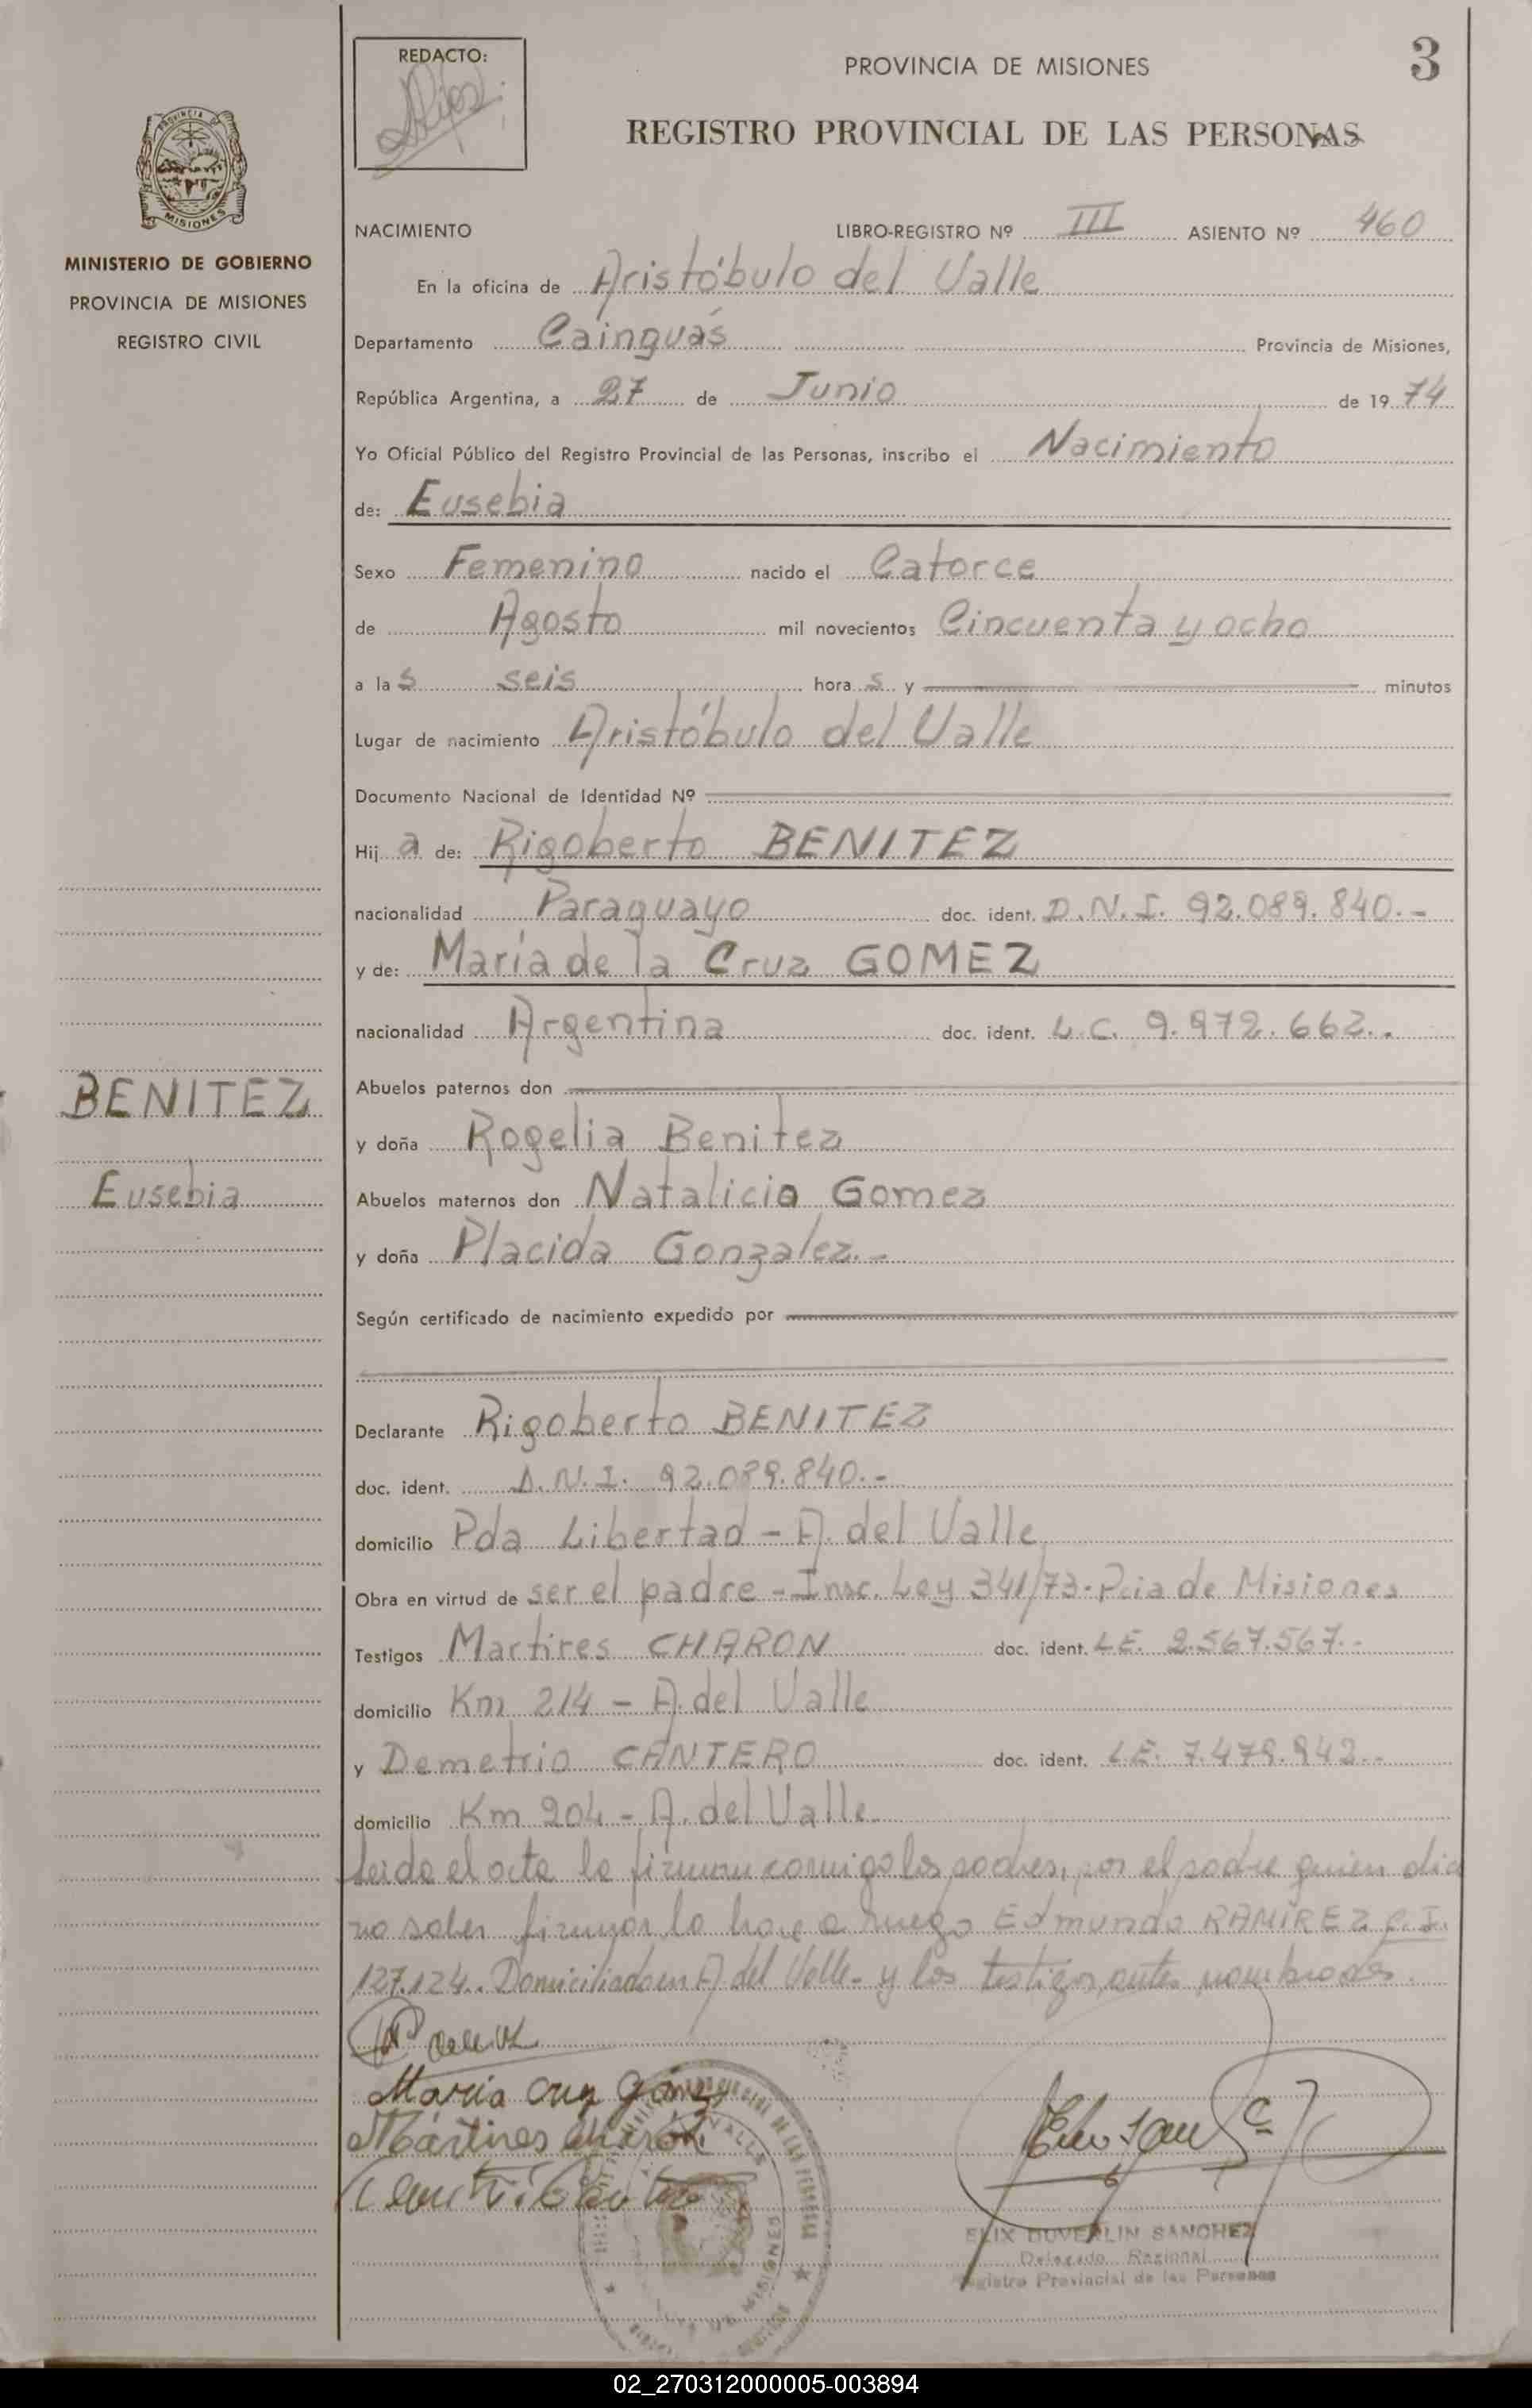 REDACTO:
PROVINCIA DE MISIONES
3
REGISTRO PROVINCIAL DE LAS PERSONAS
PROVINCIA DE
MISIONES
MINISTERIO DE GOBIERNO
PROVINCIA DE MISIONES
REGISTRO CIVIL
NACIMIENTO LIBRO-REGISTRO Nº III ASIENTO Nº 460
En la oficina de Aristóbulo del Valle
Departamento Cainguás Provincia de Misiones,
República Argentina, a 27 de Junio de 1974
Yo Oficial Público del Registro Provincial de las Personas, inscribo el Nacimiento
de: Eusebia
Sexo Femenino nacido el Catorce
de Agosto mil novecientos Cincuenta y ocho
a las seis horas y minutos
Lugar de nacimiento Aristóbulo del Valle
Documento Nacional de Identidad Nº
Hija de: Rigoberto BENITEZ
nacionalidad Paraguayo doc. ident. D.N.I. 92.089.840.-
y de: María de la Cruz GOMEZ
nacionalidad Argentina doc. ident. L.C. 9.972.662.-
Abuelos paternos don
BENITEZ
y doña Rogelia Benitez
Eusebia
Abuelos maternos don Natalicio Gomez
y doña Placida Gonzalez.-
Según certificado de nacimiento expedido por
Declarante Rigoberto BENITEZ
doc. ident. D.N.I. 92.089.840.-
domicilio Pda Libertad - A. del Valle
Obra en virtud de ser el padre - Insc. Ley 341/73-Pcia de Misiones
Testigos Martires CHARON doc. ident. L.E. 2.567.567.-
domicilio Km 214 - A. del Valle
y Demetrio CANTERO doc. ident. L.E. 7.479.942.-
domicilio Km 204 - A. del Valle
leida el acta la firman conmigo los padres, por el padre quien dice
no saber firmar lo hace a ruego Edmundo RAMIREZ C.I.
127.124. Domiciliado en A del Valle- y los testigos antes nombrados.
María Cruz Gómez
Mártires Charón
ELIX DUVERLIN SANCHEZ
Delegado Regional
Registro Provincial de las Personas
MISIONES
02_270312000005-003894